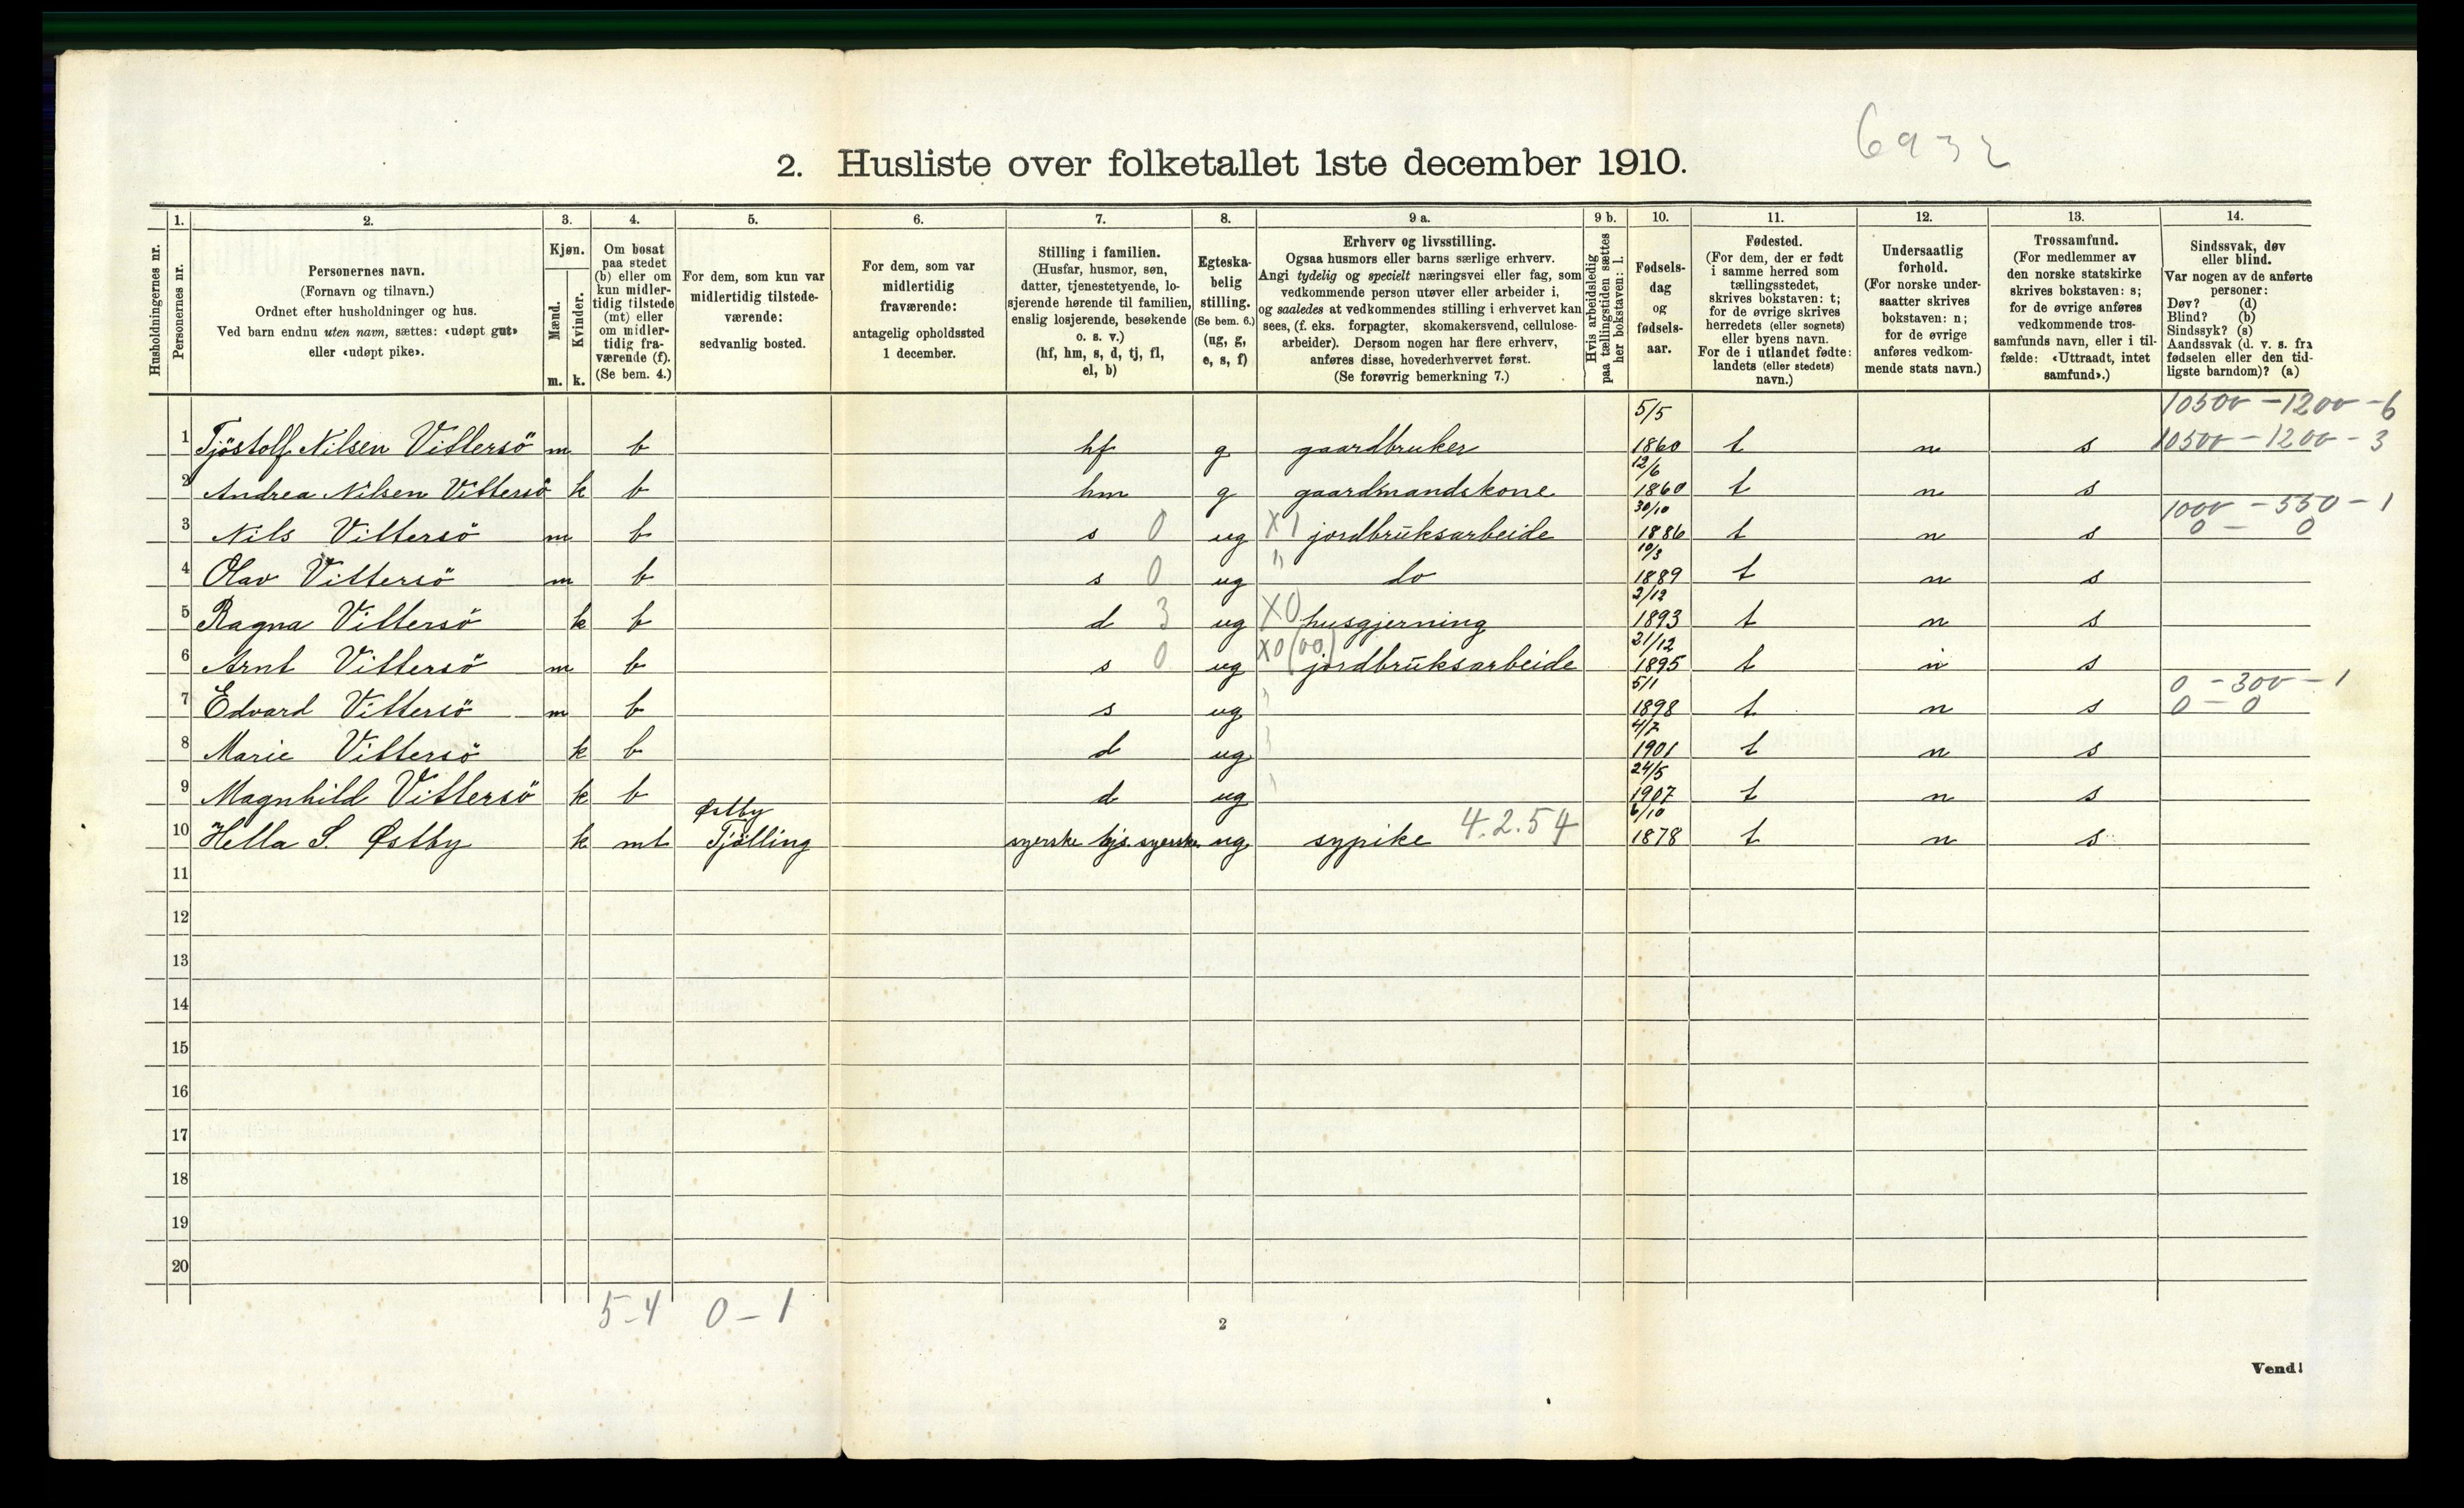 6932
2. Husliste over folketallet 1ste december 1910.
Husholdningernes nr.
1. Personernes nr.
2. Personernes navn. (Fornavn og tilnavn.) Ordnet efter husholdninger og hus. Ved barn endnu uten navn, sættes: «udøpt gut» eller «udøpt pike».
3. Kjøn. Mænd. m. Kvinder. k.
4. Om bosat paa stedet (b) eller om kun midlertidig tilstede (mt) eller om midlertidig fraværende (f). (Se bem. 4.)
5. For dem, som kun var midlertidig tilstedeværende: sedvanlig bosted.
6. For dem, som var midlertidig fraværende: antagelig opholdssted 1 december.
7. Stilling i familien. (Husfar, husmor, søn, datter, tjenestetyende, losjerende hørende til familien, enslig losjerende, besøkende o. s. v.) (hf, hm, s, d, tj, fl, el, b)
8. Egteskabelig stilling. (Se bem. 6.) (ug, g, e, s, f)
9 a. Erhverv og livsstilling. Ogsaa husmors eller barns særlige erhverv. Angi tydelig og specielt næringsvei eller fag, som vedkommende person utøver eller arbeider i, og saaledes at vedkommendes stilling i erhvervet kan sees, (f. eks. forpagter, skomakersvend, cellulosearbeider). Dersom nogen har flere erhverv, anføres disse, hovederhvervet først. (Se forøvrig bemerkning 7.)
9 b. Hvis arbeidsledig paa tællingstiden sættes her bokstaven: l.
10. Fødselsdag og fødselsaar.
11. Fødested. (For dem, der er født i samme herred som tællingsstedet, skrives bokstaven: t; for de øvrige skrives herredets (eller sognets) eller byens navn. For de i utlandet fødte: landets (eller stedets) navn.)
12. Undersaatlig forhold. (For norske undersaatter skrives bokstaven: n; for de øvrige anføres vedkommende stats navn.)
13. Trossamfund. (For medlemmer av den norske statskirke skrives bokstaven: s; for de øvrige anføres vedkommende trossamfunds navn, eller i tilfælde: «Uttraadt, intet samfund».)
14. Sindssvak, døv eller blind. Var nogen av de anførte personer: Døv? (d) Blind? (b) Sindssyk? (s) Aandssvak (d. v. s. fra fødselen eller den tidligste barndom)? (a)
10500 - 1200 - 6
1 Tjöstolf Nilsen Vittersö m b hf g gaardbruker 5/5 1860 t n s 10500 - 1200 - 3
2 Andrea Nilsen Vittersö k b hm g gaardmandskone 12/6 1860 t n s
1000 - 550 - 1
3 Nils Vittersö m b s 0 ug X1 jordbruksarbeide 30/10 1886 t n s 0 - 0
4 Olav Vittersö m b s 0 ug " do 10/3 1889 t n s
5 Ragna Vittersö k b d 3 ug X0 husgjerning 2/12 1893 t n s
6 Arnt Vittersö m b s 0 ug X0(00) jordbruksarbeide 21/12 1895 t n s
0 - 300 - 1
7 Edvard Vittersö m b s ug 5/1 1898 t n s 0 - 0
8 Marie Vittersö k b d ug 4/7 1901 t n s
9 Magnhild Vittersö k b d ug 24/5 1907 t n s
10 Hella S. Østby k mt Østby Tjølling syerske syerske ug sypike 4.2.54 6/10 1878 t n s
11
12
13
14
15
16
17
18
19
20
5-4 0-1
2
Vend!